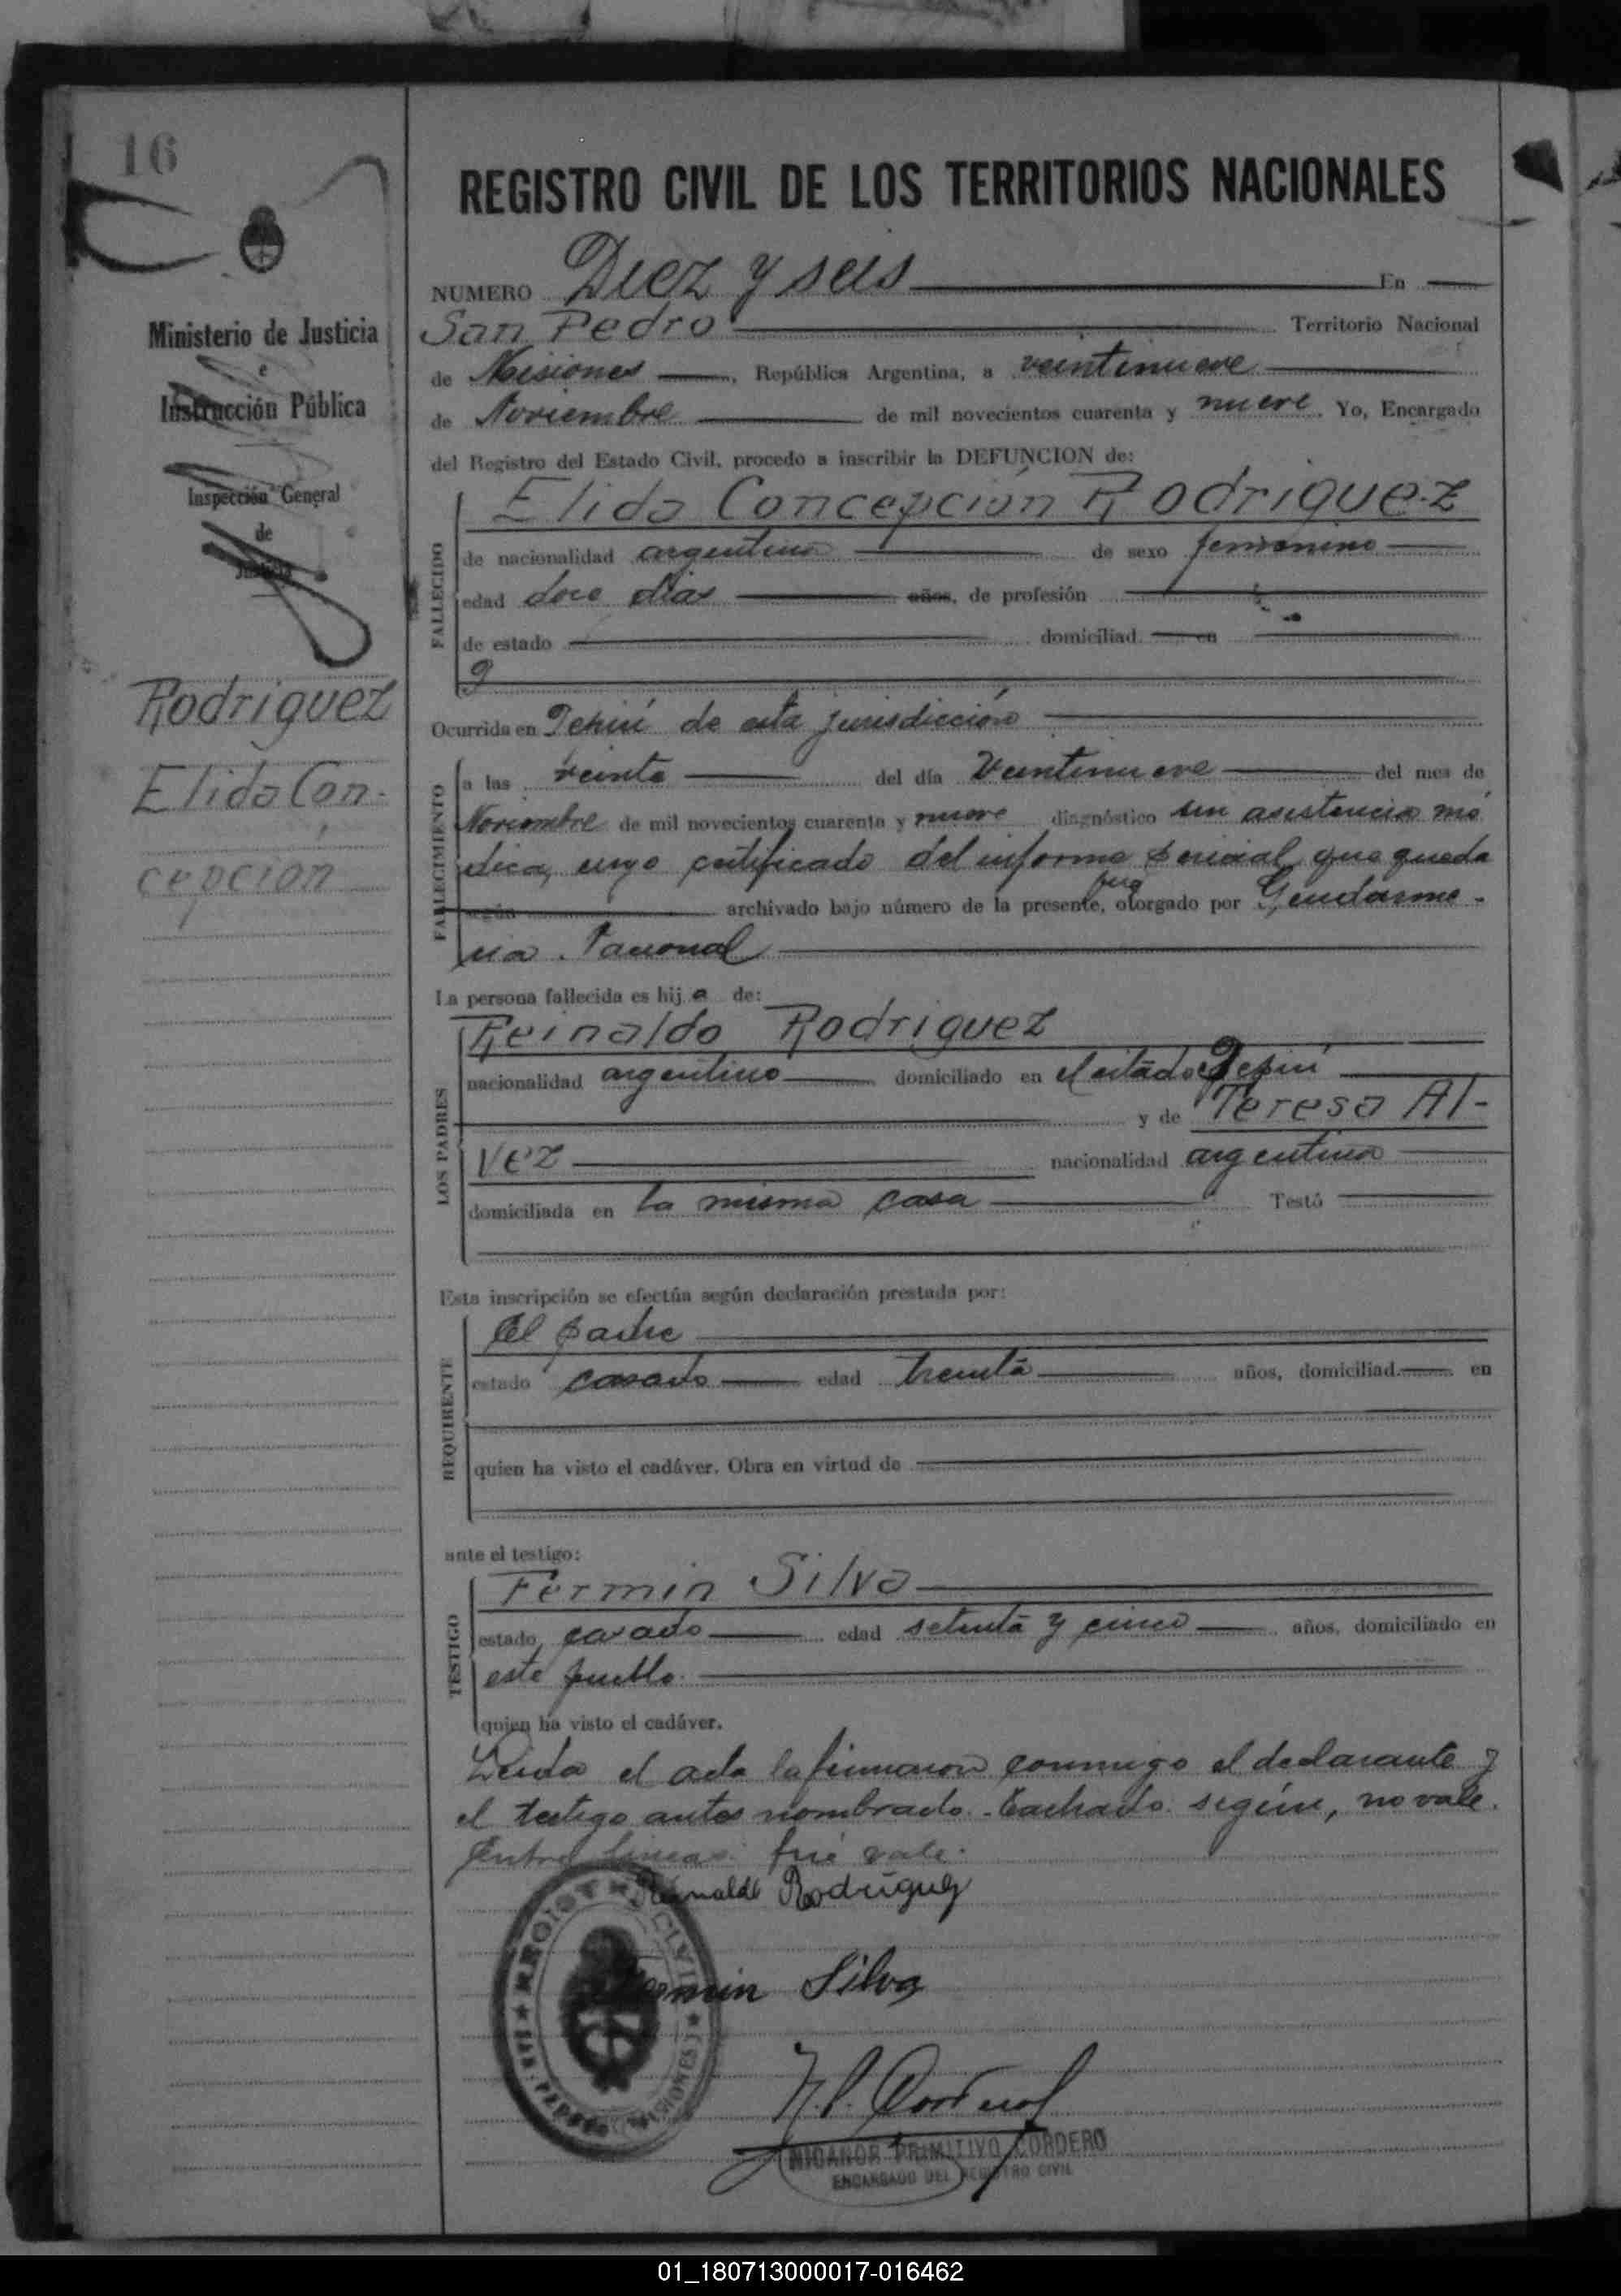 16
Ministerio de Justicia
e
Instrucción Pública
Inspección General
de
Justicia
Rodriguez
Elida Con-
cepción
REGISTRO CIVIL DE LOS TERRITORIOS NACIONALES
NUMERO Diez y seis En
San Pedro Territorio Nacional
de Misiones, República Argentina, a veintinueve
de Noviembre de mil novecientos cuarenta y nueve. Yo, Encargado
del Registro del Estado Civil, procedo a inscribir la DEFUNCION de:
FALLECIDO
Elida Concepción Rodriguez
de nacionalidad argentina de sexo femenino
edad doce dias años, de profesión
de estado domiciliad en
Ocurrida en Pepirí de esta jurisdicción
FALLECIMIENTO
a las veinte del día Veintinueve del mes de
Noviembre de mil novecientos cuarenta y nueve diagnóstico sin asistencia mé
dica, cuyo certificado del informe policial que queda
según archivado bajo número de la presente, fué otorgado por Gendarme-
ria Nacional
La persona fallecida es hija de:
LOS PADRES
Reinaldo Rodriguez
nacionalidad argentino domiciliado en el citado Pepirí
y de Teresa Al-
vez nacionalidad argentina
domiciliada en la misma casa Testó
Esta inscripción se efectúa según declaración prestada por:
REQUIRENTE
El padre
estado casado edad treinta años, domiciliad en
quien ha visto el cadáver. Obra en virtud de
ante el testigo:
TESTIGO
Fermin Silva
estado casado edad setenta y cinco años, domiciliado en
este pueblo
quien ha visto el cadáver.
Leida el acta la firmaron conmigo el declarante y
el testigo antes nombrado. Tachado: según, no vale.
Entre lineas: fué vale.
Reinaldo Rodriguez
Fermin Silva
REGISTRO CIVIL
SAN PEDRO (MISIONES)
N.P. Cordero
NICANOR PRIMITIVO CORDERO
ENCARGADO DEL REGISTRO CIVIL
01_180713000017-016462